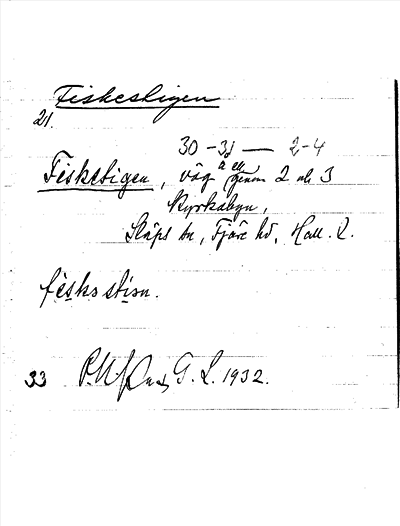 Fiskestigen
21.
30 – 31 — 2–4
Fiskestigen, väg å ell. genom 2 och 3
Kyrkabyn,
Släps sn, Fjäre hd, Hall. l.
feskɘstiɘn.
33 G. L. 1932.